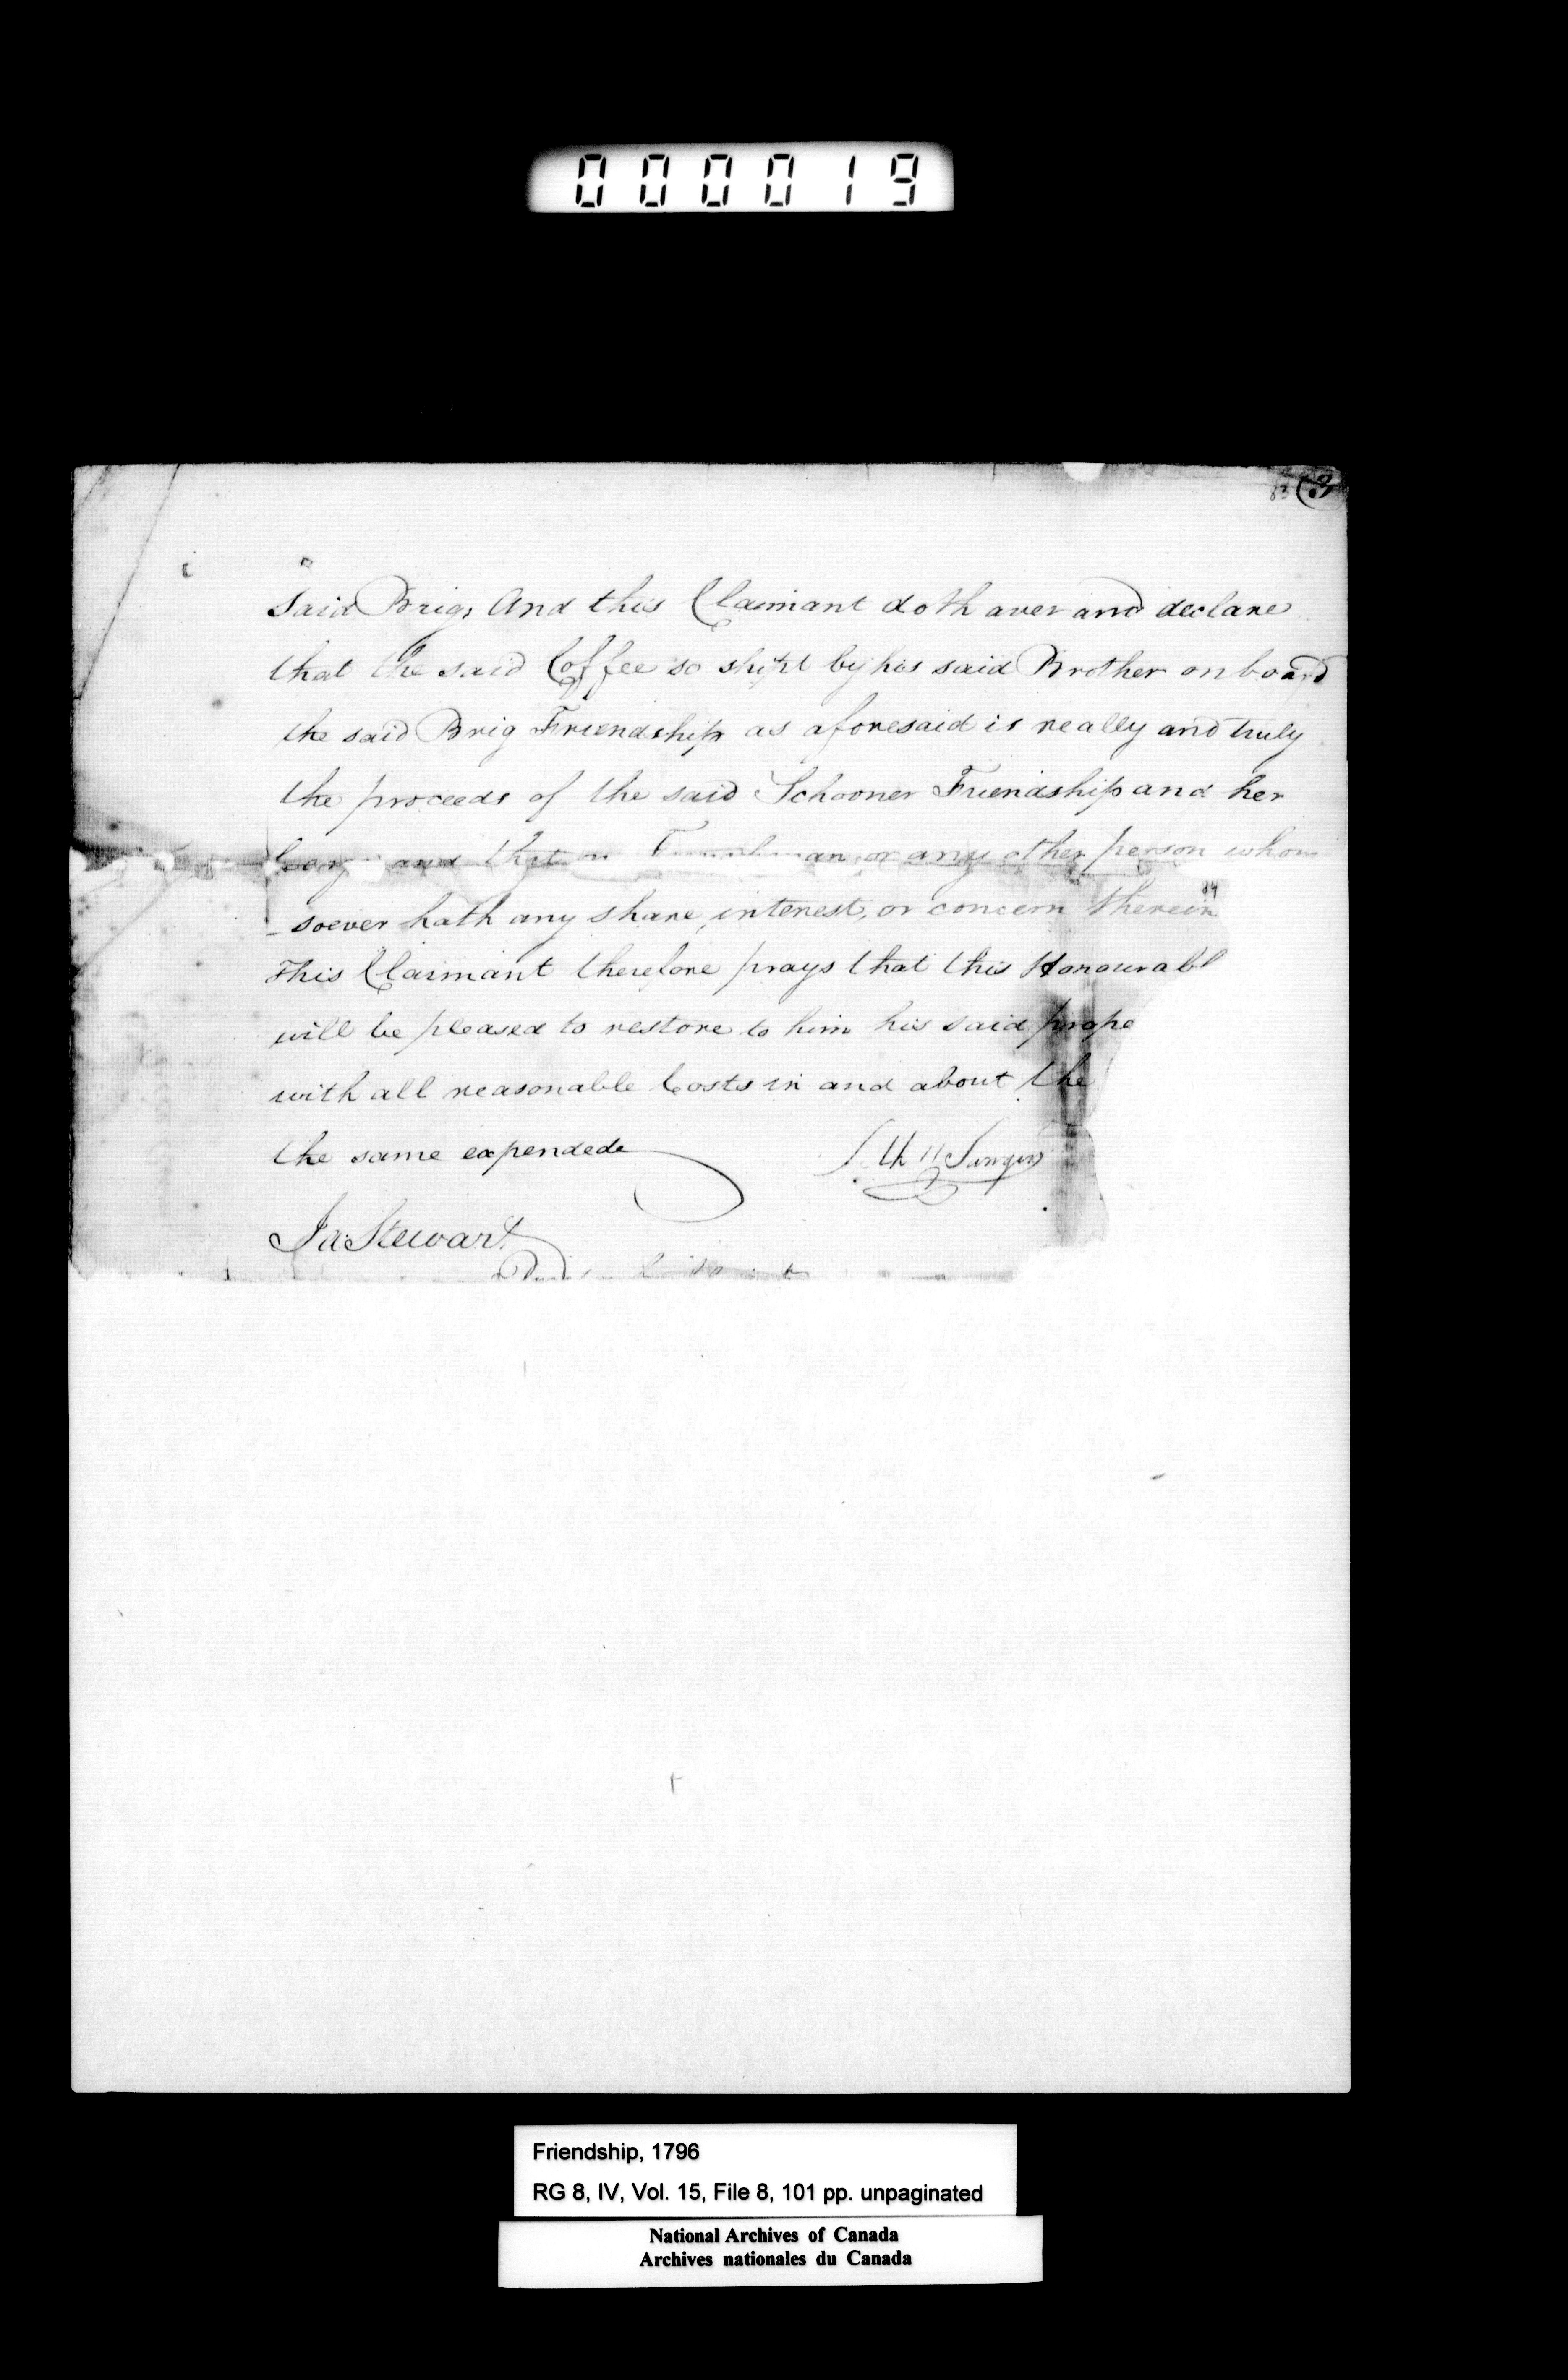 000019
83 (3
Said Brig, And this Claimant doth aver and declare
that the said Coffee so shipt by his said Brother on board
the said Brig Friendship as aforesaid is really and truly
the proceeds of the said Schooner Friendship and her
and that no or any other person whom
84
soever hath any share, interest, or concern therein
This Claimant therefore prays that this Honourabl
will be pleased to restore to him his said prope
with all reasonable Costs in and about the
the same expended
Ja: Stewart
Friendship, 1796
RG 8, IV, Vol. 15, File 8, 101 pp. unpaginated
National Archives of Canada
Archives nationales du Canada